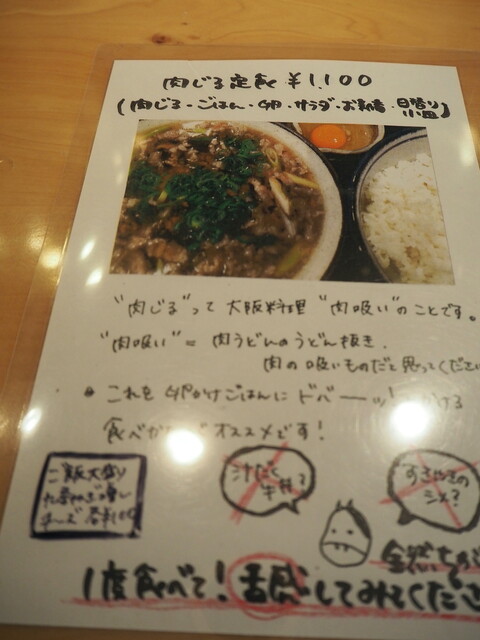 肉じる定食 ¥1,100
(肉じる・ごはん・卵・サラダ・お新香・日替り小皿)
"肉じる"って大阪料理"肉吸い"のことです。
"肉吸い"= 肉うどんのうどん抜き.
肉の吸いものだと思ってくださ
● これを卵かけごはんにドバーッとかける
食べか オススメです!
ご飯大盛り
チーズ
汁だく
牛丼?
すきやきの
シメ?
全然ちが
1度食べて!舌感してみてくださ